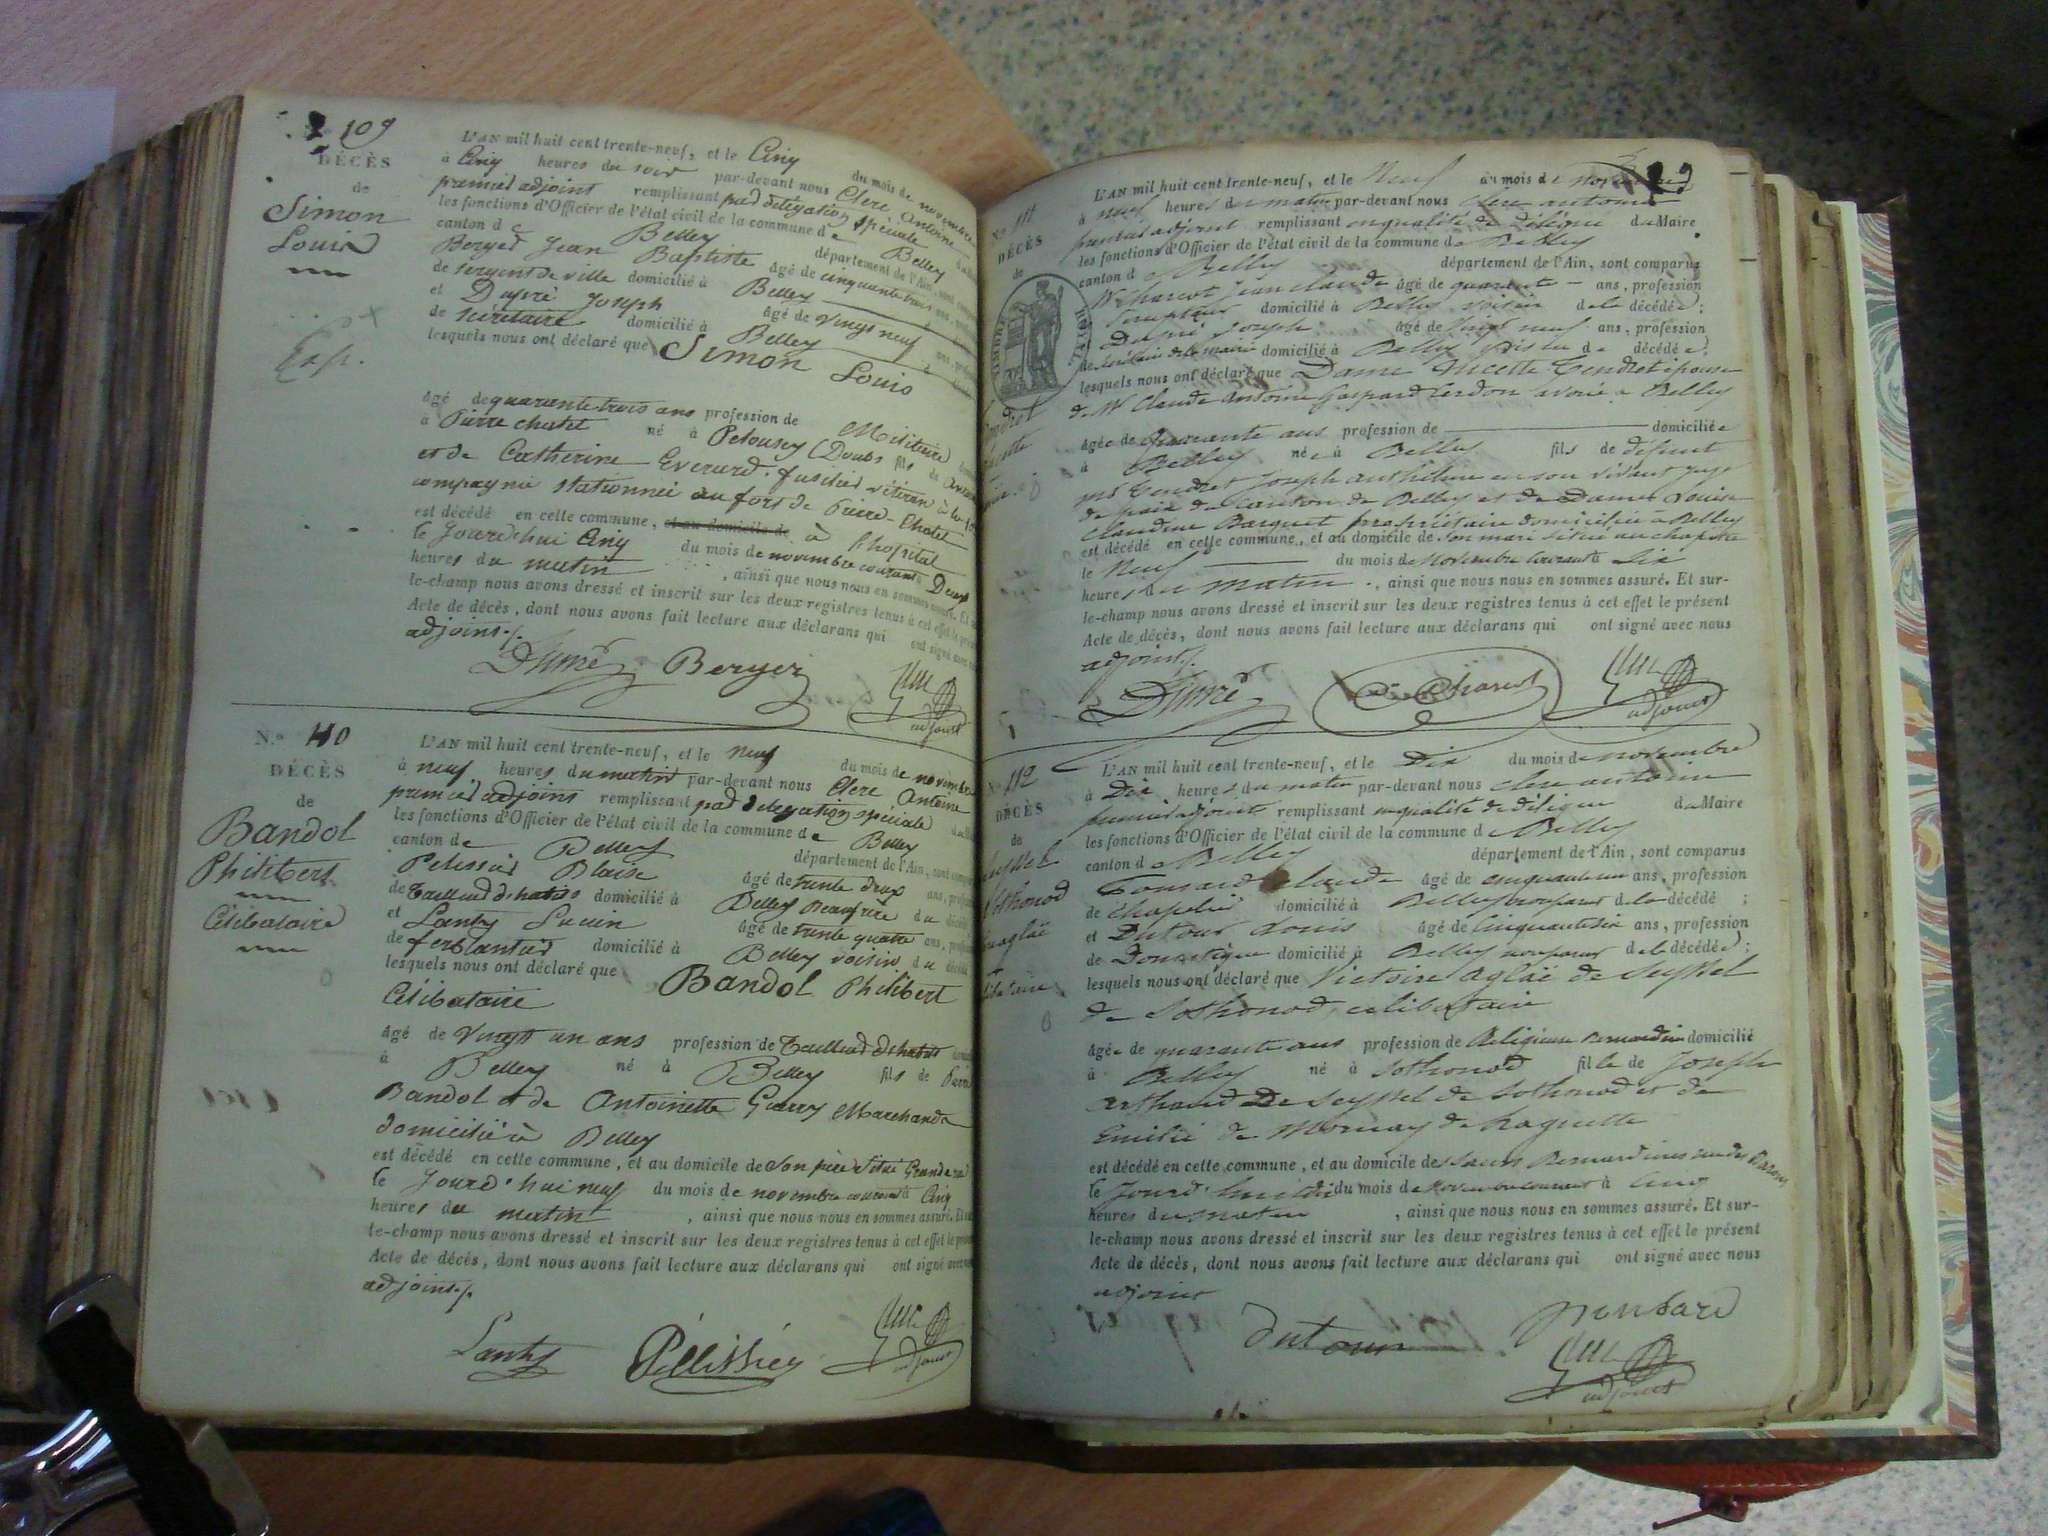 109
DÉCÈS
de
Simon
Louis
Exp.
L'AN mil huit cent trente-neuf, et le Cinq du mois de novembre
à Cinq heures du soir par-devant nous Clerc Antoine
premier adjoint remplissant par délégation spéciale
les fonctions d'Officier de l'état civil de la commune de Belley
canton de Belley département de l'Ain, sont
Berger Jean Baptiste âgé de cinquante trois ans
de sergent de ville domicilié à Belley
et Dupré Joseph âgé de vingt neuf ans
de secrétaire domicilié à Belley
lesquels nous ont déclaré que Simon Louis
âgé de quarante-trois ans profession de Militaire
à Pierre chatel né à Pelousey (Doubs fils de
et de Catherine Everard. fusilier vétéran à la
compagnie stationnée au fort de Pierre-Chatel
est décédé en cette commune, et au domicile de à l'hopital
le Jourd'hui Cinq du mois de novembre courant à Deux
heures du matin, ainsi que nous nous en sommes assuré. Et
le-champ nous avons dressé et inscrit sur les deux registres tenus à cet effet le
Acte de décès, dont nous avons fait lecture aux déclarans qui ont signé avec
adjoint./.
Dupré Berger
adjoint
N.º 110
DÉCÈS
de
Bandol
Philibert
Célibataire
L'AN mil huit cent trente-neuf, et le neuf du mois de novembre
à neuf heures du matin par-devant nous Clerc Antoine
premier adjoint remplissant par delegation spéciale
les fonctions d'Officier de l'état civil de la commune de Belley
canton de Belley département de l'Ain, sont
Pelissier Blaise âgé de trente deux ans
de Tailleur d'habits domicilié à Belley Beaufrère du décédé
et Lanty Lucien âgé de trente quatre ans
de ferblantier domicilié à Belley voisin du décédé
lesquels nous ont déclaré que Bandol Philibert
Célibataire
âgé de vingt un ans profession de Tailleur d'habits
à Belley né à Belley fils de
Bandol et de Antoinette Guerry Marchande
domicilié à Belley
est décédé en cette commune, et au domicile de son père situé Grande rue
le Jourd'hui neuf du mois de novembre courant à Cinq
heures du matin, ainsi que nous nous en sommes assuré. Et
le-champ nous avons dressé et inscrit sur les deux registres tenus à cet effet le
Acte de décès, dont nous avons fait lecture aux déclarans qui ont signé avec
adjoint./.
Lanty Péllissiér
adjoint
N.º 111
DÉCÈS
de
L'AN mil huit cent trente-neuf, et le Neuf du mois de novembre
à neuf heures du matin par-devant nous Clerc antoine
premier adjoint remplissant en qualité de délégué du Maire
les fonctions d'Officier de l'état civil de la commune de Belley
canton de Belley département de l'Ain, sont comparus
Mr Charcot Jean claude âgé de quarante ans, profession
sculpteur domicilié à Belley voisin de la décédée;
Dupré Joseph âgé de vingt neuf ans, profession
de secrétaire de la mairie domicilié à Belley voisin de décédée;
lesquels nous ont déclaré que Dame Tendret épouse
de Mr Claude antoine Gaspard Cerdon avoué à Belley
âgée de Quarante ans profession de domiciliée
à Belley née à Belley fils de défunt
mr Tendret Joseph anthelme en son vivant Juge
de paix du canton de Belley et de Dame Louise
Claudine Barquet propriétaire domiciliée à Belley
est décédé en cette commune, et au domicile de son mari située au chapitre
le Neuf du mois de Novembre Courant à Dix
heures du matin, ainsi que nous nous en sommes assuré. Et sur-
le-champ nous avons dressé et inscrit sur les deux registres tenus à cet effet le présent
Acte de décès, dont nous avons fait lecture aux déclarans qui ont signé avec nous
adjoint./.
Dupré Charcot
adjoint
N.º 112
DÉCÈS
de
L'AN mil huit cent trente-neuf, et le Dix du mois de novembre
à Dix heures du matin par-devant nous Clerc antoine
premier adjoint remplissant en qualité de délégué du Maire
les fonctions d'Officier de l'état civil de la commune de Belley
canton de Belley département de l'Ain, sont comparus
claude âgé de cinquante un ans, profession
de chapelier domicilié à Belley non parent de la décédé;
et Dutour Louis âgé de Cinquante six ans, profession
de Domestique domicilié à Belley non parent de la décédée;
lesquels nous ont déclaré que Victoire Aglaë de Seyssel
de Sothonod, célibataire
âgée de quarante ans profession de Religieuse Bernardine domicilié
à Belley né à Sothonod fille de Joseph
arthaud De Seyssel de Sothonod et de
Emilie de Mornay de
est décédé en cette commune, et au domicile des sœurs Bernardines rue des Barons
le Jourd'hui dix du mois de Novembre courant à Cinq
heures du matin, ainsi que nous nous en sommes assuré. Et sur-
le-champ nous avons dressé et inscrit sur les deux registres tenus à cet effet le présent
Acte de décès, dont nous avons fait lecture aux déclarans qui ont signé avec nous
adjoint
dutour
adjoint